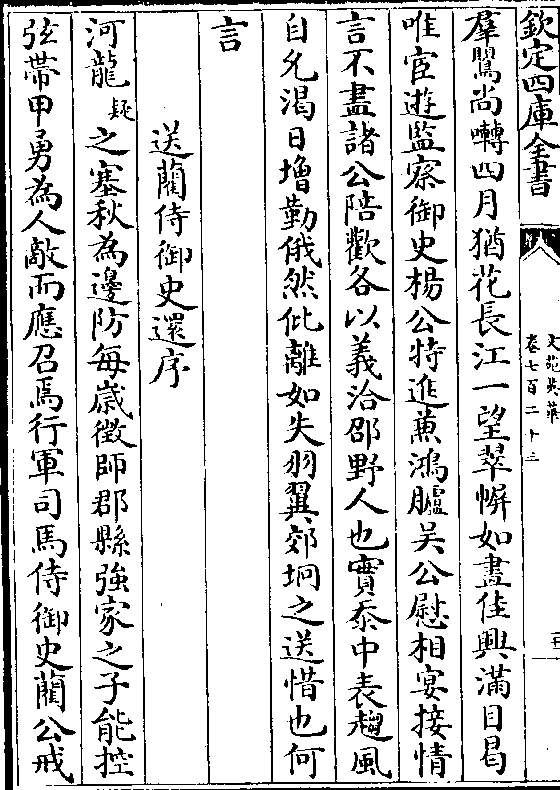 欽定四庫全書
文苑英華
卷七百二十三
羣鶯尚囀四月猶花長江一望翠㡩如畫佳興滿目曷
唯宦遊監察御史楊公特進蕪鴻臚吳公慰相宴接情
言不盡諸公陪歡各以義洽邵野人也實忝中表趨風
自允渴日增勤俄然仳離如失羽翼郊坰之送惜也何
言
送藺侍御史還序
河龍疑之塞秋為邊防每歳徴師郡縣強家之子能控
弦帶甲勇為人敵而應召焉行軍司馬侍御史藺公戒